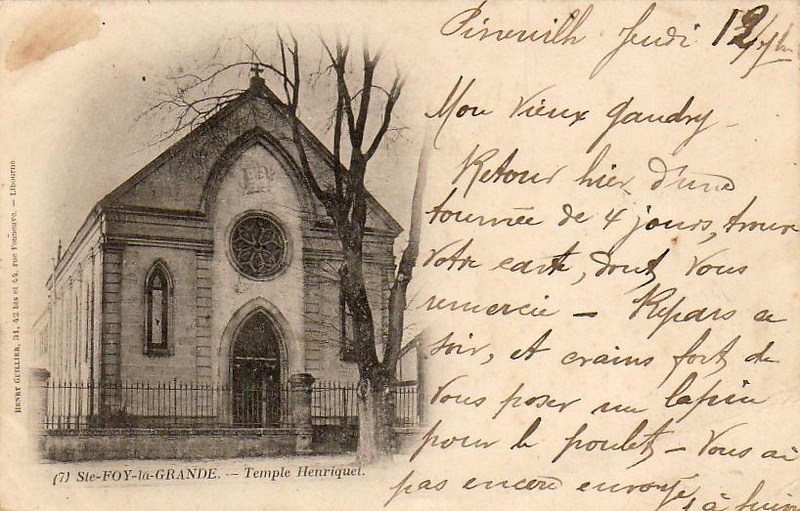 Pineuilh Jeudi 12
Mon Vieux Gaudry -
Retour hier d'une
tournée de 4 jours, trouve
votre carte, dont, vous
remercie - Repars ce
soir, et crains fort de
vous poser un lapin
pour le poulet - Vous ai
pas encore envoyé
HENRY GUILLIER, 31, 42 bis et 44, rue Fonneuve. — Libourne
(7) Ste-FOY-la-GRANDE. — Temple Henriquet.